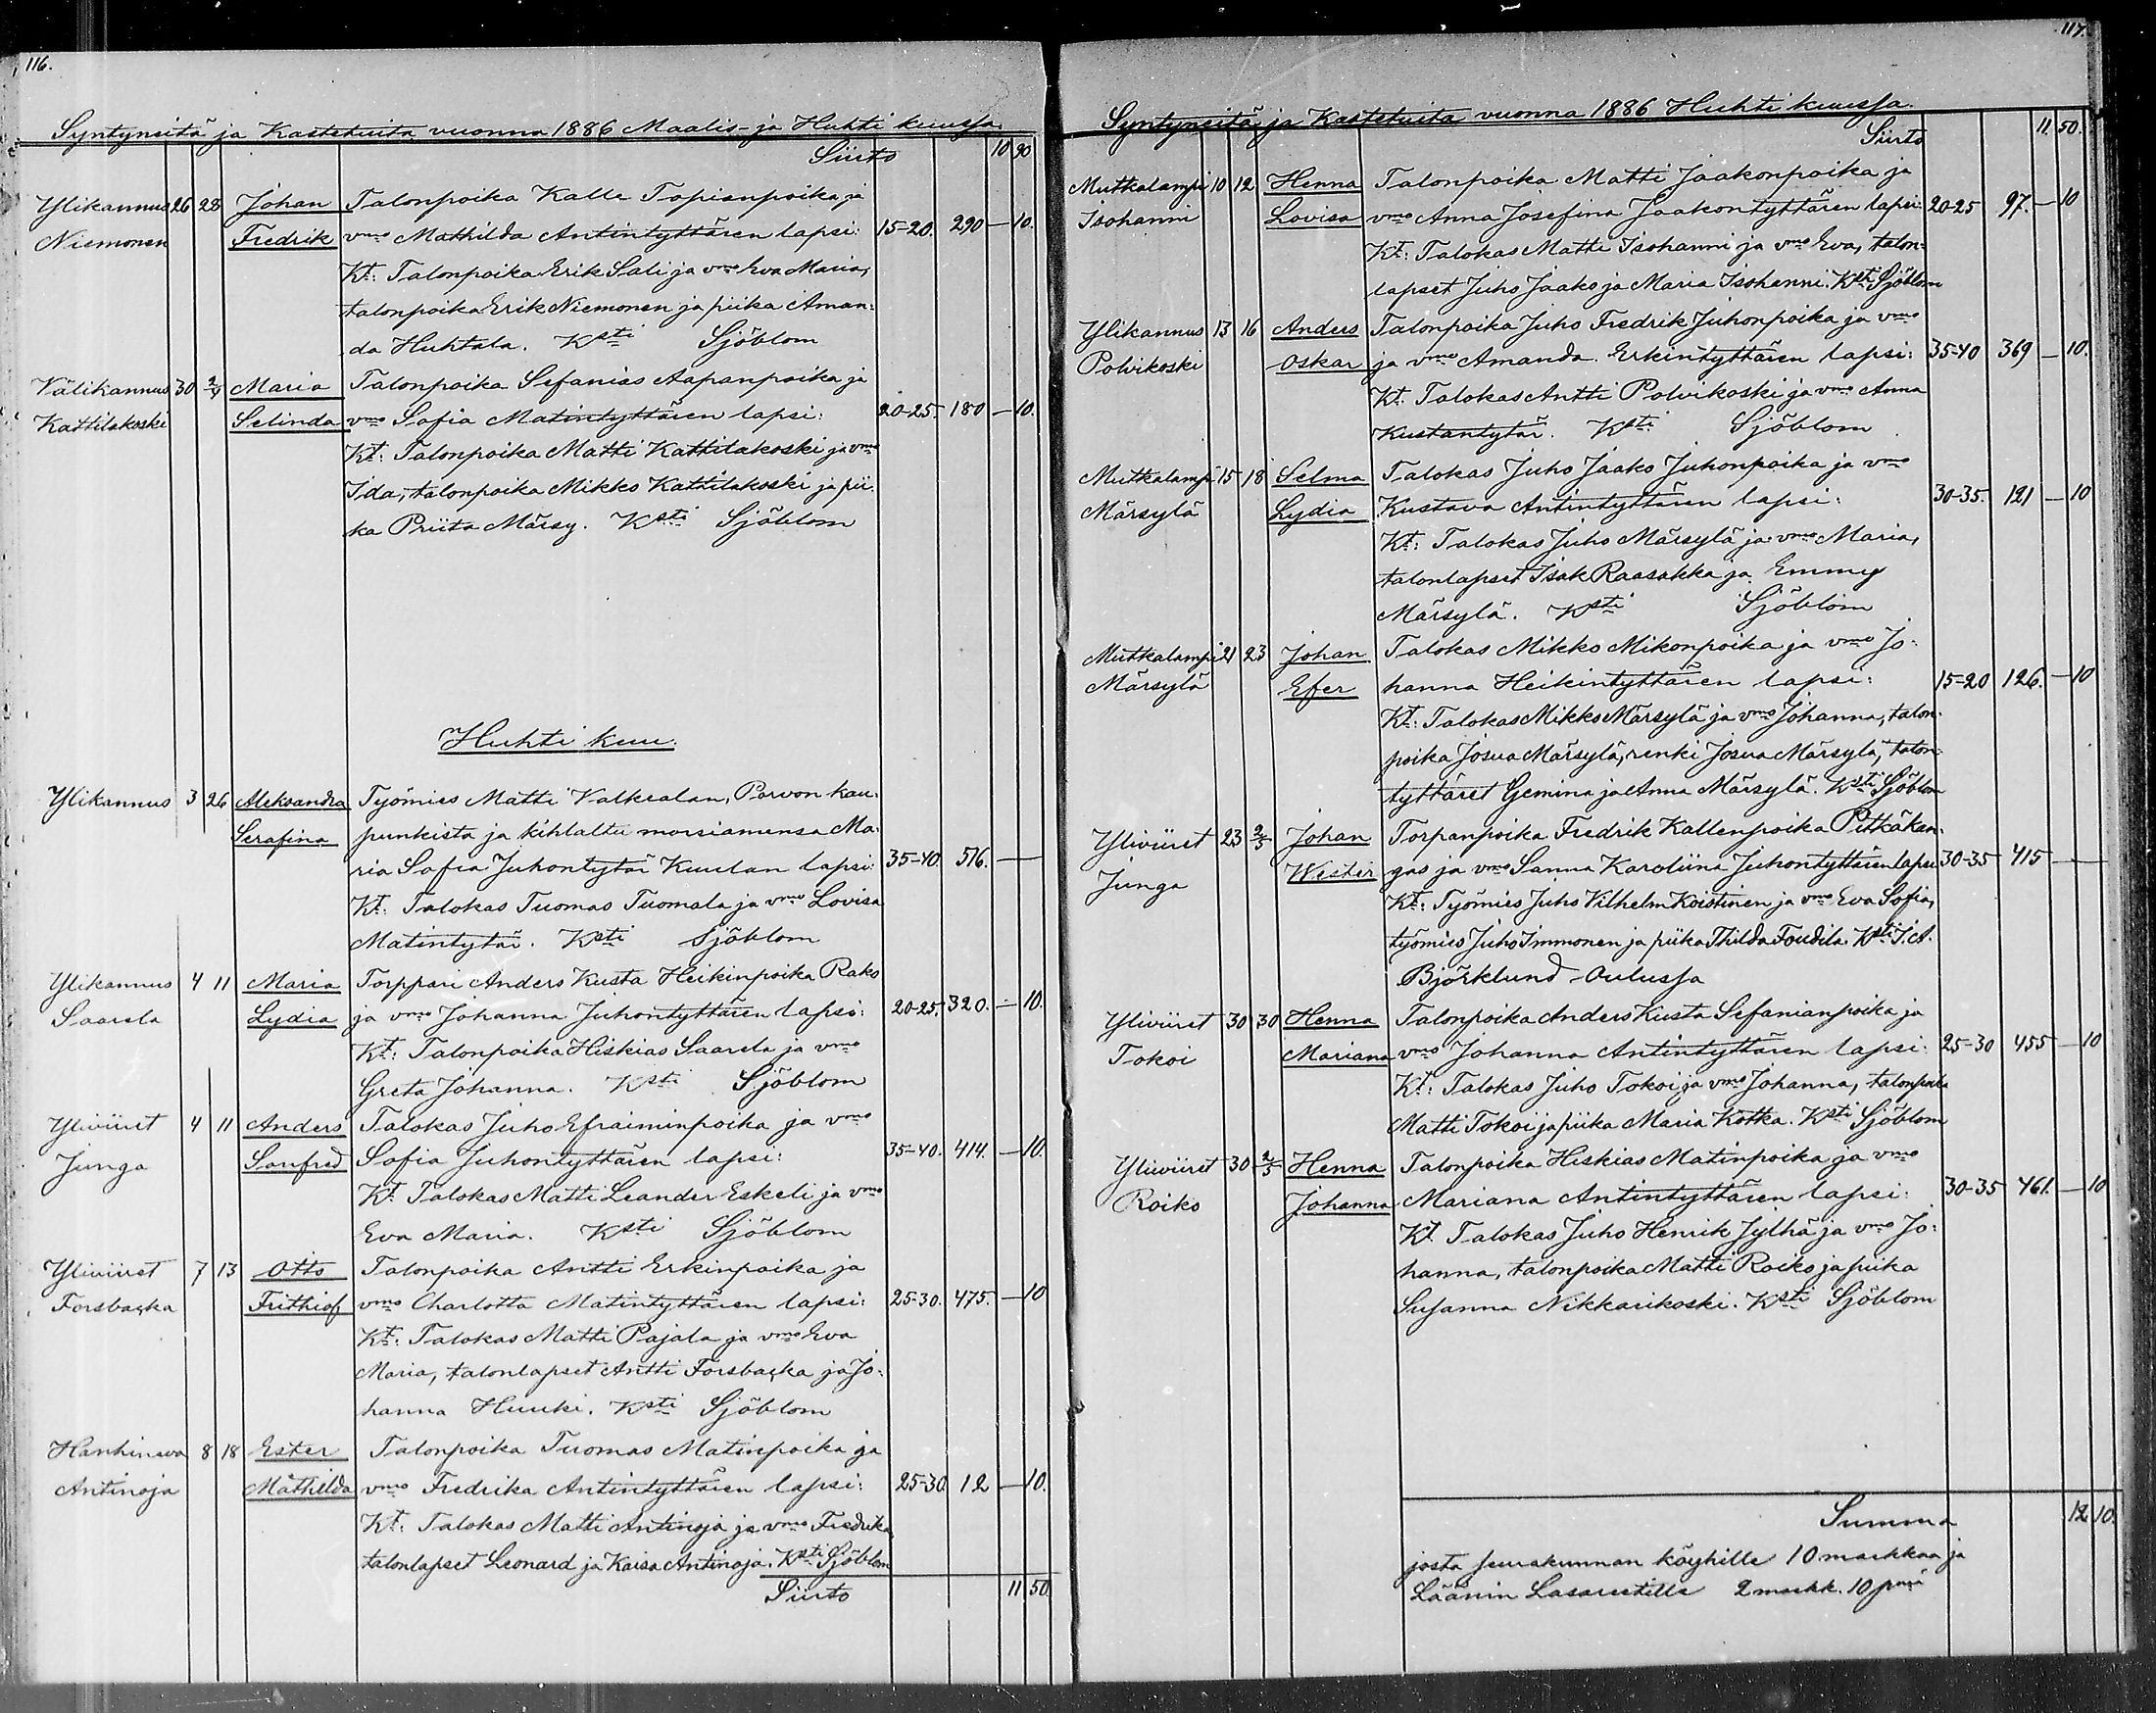 116.
Syntyneitä ja Kastetuita vuonna 1886 Maalis- ja Huhti kuussa.
Siirto 10 90
Ylikannus 26 28 Johan Talonpoika Kalle Topianpoika ja
Niemonen Fredrik vmo Mathilda Antintyttären lapsi: 15-20. 290 — 10.
Kt: Talonpoika Erik Sali ja vmo Eva Maria,
talonpoika Erik Niemonen ja piika Aman-
da Huhtala. Ksti Sjöblom
Välikannus 30 2/4 Maria Talonpoika Sefanias Aapanpoika ja
Kattilakoski Selinda vmo Sofia Matintyttären lapsi: 20-25. 180 — 10.
Kt: Talonpoika Matti Kattilakoski ja vmo
Ida, talonpoika Mikko Kattilakoski ja pii-
ka Priita Märsy. Ksti Sjöblom
Huhti kuu.
Ylikannus 3 26 Aleksandra Työmies Matti Valkealan, Porvon kau-
Serafina punkista ja kihlattu morsiamensa Ma-
ria Sofia Juhontytär Kuulan lapsi: 35-40. 516. —
Kt: Talokas Tuomas Tuomala ja vmo Lovisa
Matintytär. Ksti Sjöblom
Ylikannus 4 11 Maria Torppari Anders Kusta Heikinpoika Rako
Saarela Lydia ja vmo Johanna Juhontyttären lapsi: 20-25. 320. — 10.
Kt: Talonpoika Hiskias Saarela ja vmo
Greta Johanna. Ksti Sjöblom
Yliviiret 4 11 Anders Talokas Juho Efraiminpoika ja vmo
Junga Sanfred Sofia Juhontyttären lapsi: 35-40. 414. — 10.
Kt Talokas Matti Leander Eskeli ja vmo
Eva Maria. Ksti Sjöblom
Yliviiret 7 13 Otto Talonpoika Antti Erkinpoika ja
Forsbacka Frithiof vmo Charlotta Matintyttären lapsi: 25-30. 475. — 10
Kt: Talokas Matti Pajala ja vmo Eva
Maria, talonlapset Antti Forsbacka ja Jo-
hanna Huuki. Ksti Sjöblom
Hanhineva 8 18 Ester Talonpoika Tuomas Matinpoika ja
Antinoja Mathilda vmo Fredrika Antintyttären lapsi: 25-30 12 — 10.
Kt: Talokas Matti Antinoja ja vmo Fredrika,
talonlapset Leonard ja Kaisa Antinoja. Ksti Sjöblom
Siirto 11 50
117.
Syntyneitä ja Kastetuita vuonna 1886 Huhti kuussa.
Siirto 11. 50.
Mutkalampi 10 12 Henna Talonpoika Matti Jaakonpoika ja
Isohanni Lovisa vmo Anna Josefina Jaakontyttären lapsi: 20-25 97. — 10
Kt: Talokas Matti Isohanni ja vmo Eva, talon-
lapset Juho Jaako ja Maria Isohanni. Ksti Sjöblom
Ylikannus 13 16 Anders Talonpoika Juho Fredrik Juhonpoika ja vmo
Polvikoski Oskar ja vmo Amanda Erkintyttären lapsi: 35-40 369 — 10.
Kt. Talokas Antti Polvikoski ja vmo Anna
Kustantytär. Ksti Sjöblom
Mutkalampi 15 18 Selma Talokas Juho Jaako Juhonpoika ja vmo
Märsylä Lydia Kustava Antintyttären lapsi: 30-35. 121 — 10
Kt: Talokas Juho Märsylä ja vmo Maria,
talonlapset Isak Raasakka ja Emmy
Märsylä. Ksti Sjöblom
Mutkalampi 21 23 Johan Talokas Mikko Mikonpoika ja vmo Jo-
Märsylä Efer hanna Heikintyttären lapsi: 15-20 126. — 10
Kt: Talokas Mikko Märsylä ja vmo Johanna, talon-
poika Josua Märsylä, renki Josua Märsylä, talon-
tyttäret Gemina ja Anna Märsylä. Ksti Sjöblom
Yliviiret 23 2/5 Johan Torpanpoika Fredrik Kallenpoika Pitkäkan-
Junga Wester gas ja vmo Sanna Karoliina Juhontyttären lapsi 30-35 415 —
Kt: Työmies Juho Vilhelm Koistinen ja vmo Eva Sofia,
työmies Juho Immonen ja piika Thilda Foudila. Ksti J. A.
Björklund Oulussa
Yliviiret 30 30 Henna Talonpoika Anders Kusta Sefanianpoika ja
Tokoi Mariana vmo Johanna Antintyttären lapsi: 25-30 455 — 10
Kt: Talokas Juho Tokoi ja vmo Johanna, talonpoika
Matti Tokoi ja piika Maria Kotka. Ksti Sjöblom
Yliviiret 30 2/5 Henna Talonpoika Hiskias Matinpoika ja vmo
Roiko Johanna Mariana Antintyttären lapsi: 30-35 461. — 10
Kt Talokas Juho Henrik Jylhä ja vmo Jo-
hanna, talonpoika Matti Roiko ja piika
Susanna Nikkarikoski. Ksti Sjöblom
Summa 12. 10.
josta seurakunnan köyhille 10 markkaa ja
Läänin Lasaretille 2 markk. 10 pniä